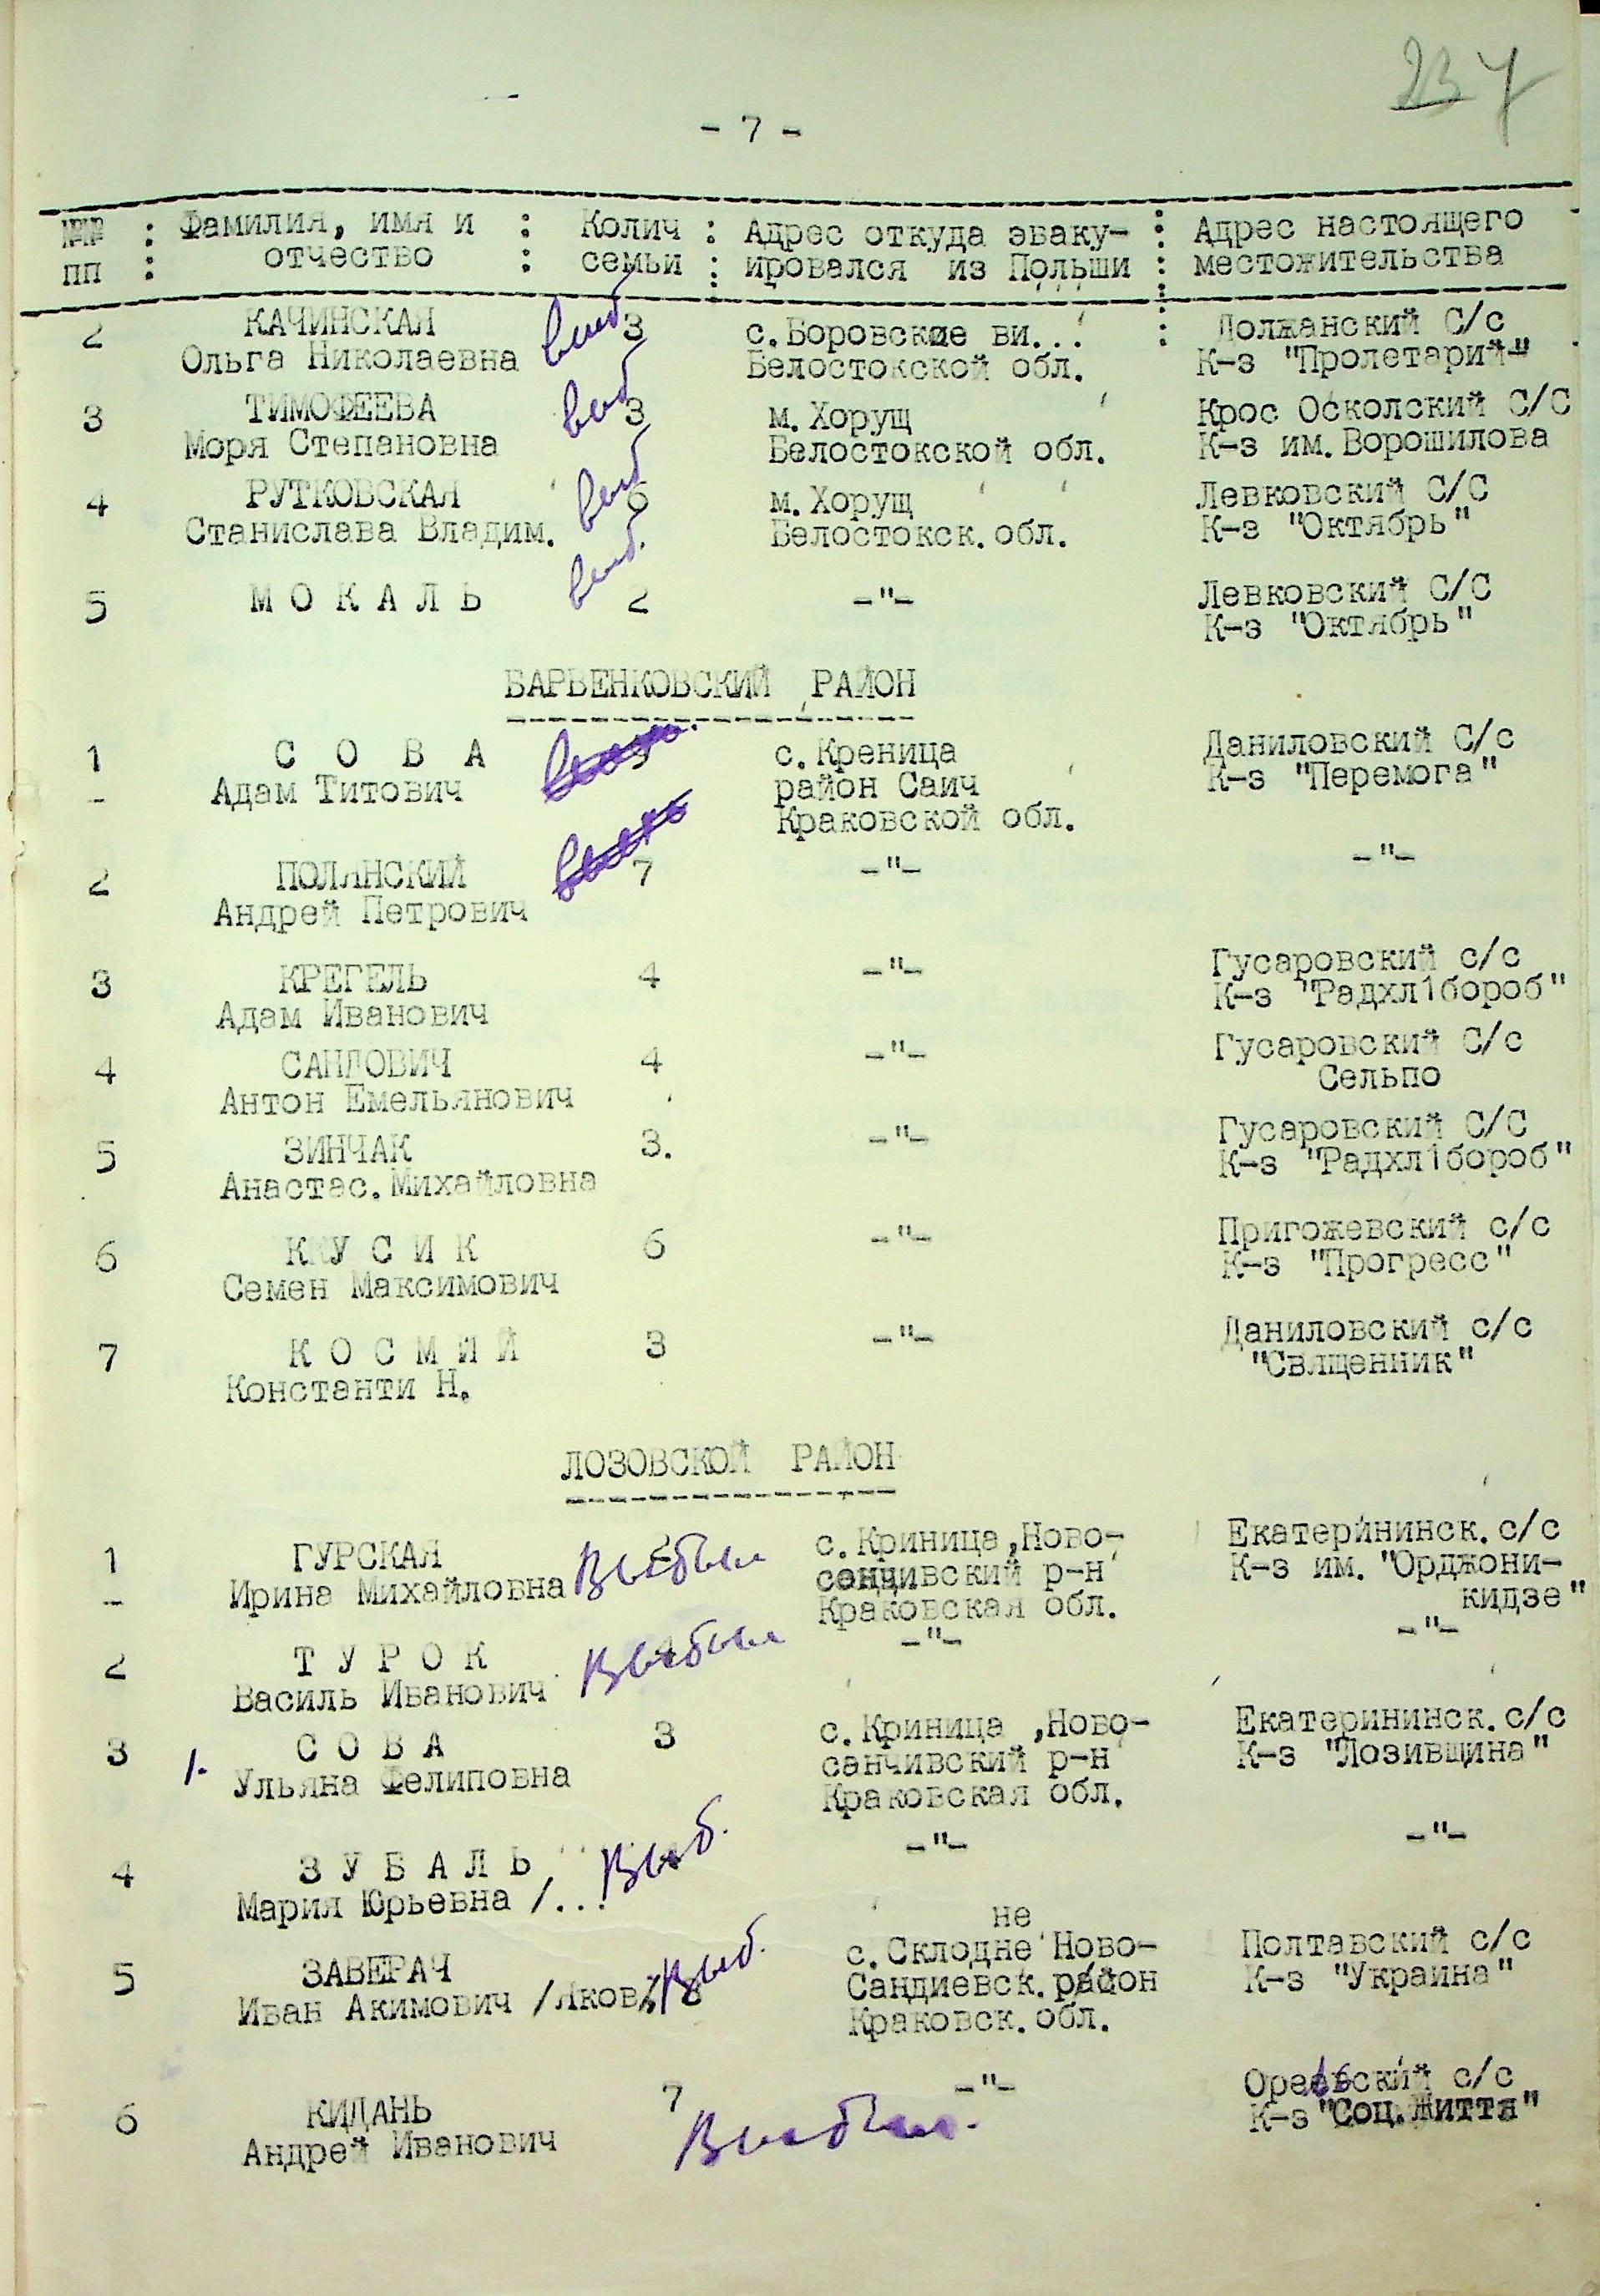 237
- 7 -
№№ : Фамилия, имя и : Колич : Адрес откуда эваку- : Адрес настоящего
пп : отчество : семьи : ировался из Польши : местожительства
2 КАЧИНСКАЯ выб 3 с.Боровские ви... : Должанский С/с
Ольга Николаевна Белостокской обл. К-з "Пролетарий"
3 ТИМОФЕЕВА выб 3 м.Хорущ Крос Осколский С/С
Моря Степановна Белостокской обл. К-з им.Ворошилова
4 РУТКОВСКАЯ выб 6 м.Хорущ Левковский С/С
Станислава Владим. Белостокск.обл. К-з "Октябрь"
5 М О К А Л Ь выб. 2 -"- Левковский С/С
К-з "Октябрь"
БАРВЕНКОВСКИЙ РАЙОН
1 С О В А с.Креница Даниловский С/с
- Адам Титович район Саич К-з "Перемога"
Краковской обл.
2 ПОЛЯНСКИЙ 7 -"- -"-
Андрей Петрович
3 КРЕГЕЛЬ 4 -"- Гусаровский с/с
Адам Иванович К-з "Радхл1бороб"
4 САНДОВИЧ 4 -"- Гусаровский С/с
Антон Емельянович Сельпо
5 ЗИНЧАК 3. -"- Гусаровский С/С
Анастас.Михайловна К-з "Радхл1бороб"
6 ККУ С И К 6 -"- Пригожевский с/с
Семен Максимович К-з "Прогресс"
7 К О С М И Й 3 -"- Даниловский с/с
Константи Н. "Священник"
ЛОЗОВСКОЙ РАЙОН
1 ГУРСКАЯ Выбыли с.Криница,Ново- Екатерининск.с/с
- Ирина Михайловна санчивский р-н К-з им."Орджони-
Краковская обл. кидзе"
2 Т У Р О К Выбыли -"- -"-
Василь Иванович
3 1. С О В А 3 с.Криница ,Ново- Екатерининск.с/с
Ульяна Фелиповна санчивский р-н К-з "Лозивщина"
Краковская обл.
4 З У Б А Л Ь Выб. -"- -"-
Мария Юрьевна /...
не
5 ЗАВЕРАЧ Выб. с.Склодне Ново- Полтавский с/с
Иван Акимович /Яков/ Сандиевск.район К-з "Украина"
Краковск.обл.
6 КИДАНЬ 7 -"- Орельский с/с
Андрей Иванович Выбыли. К-з "Соц.Життя"